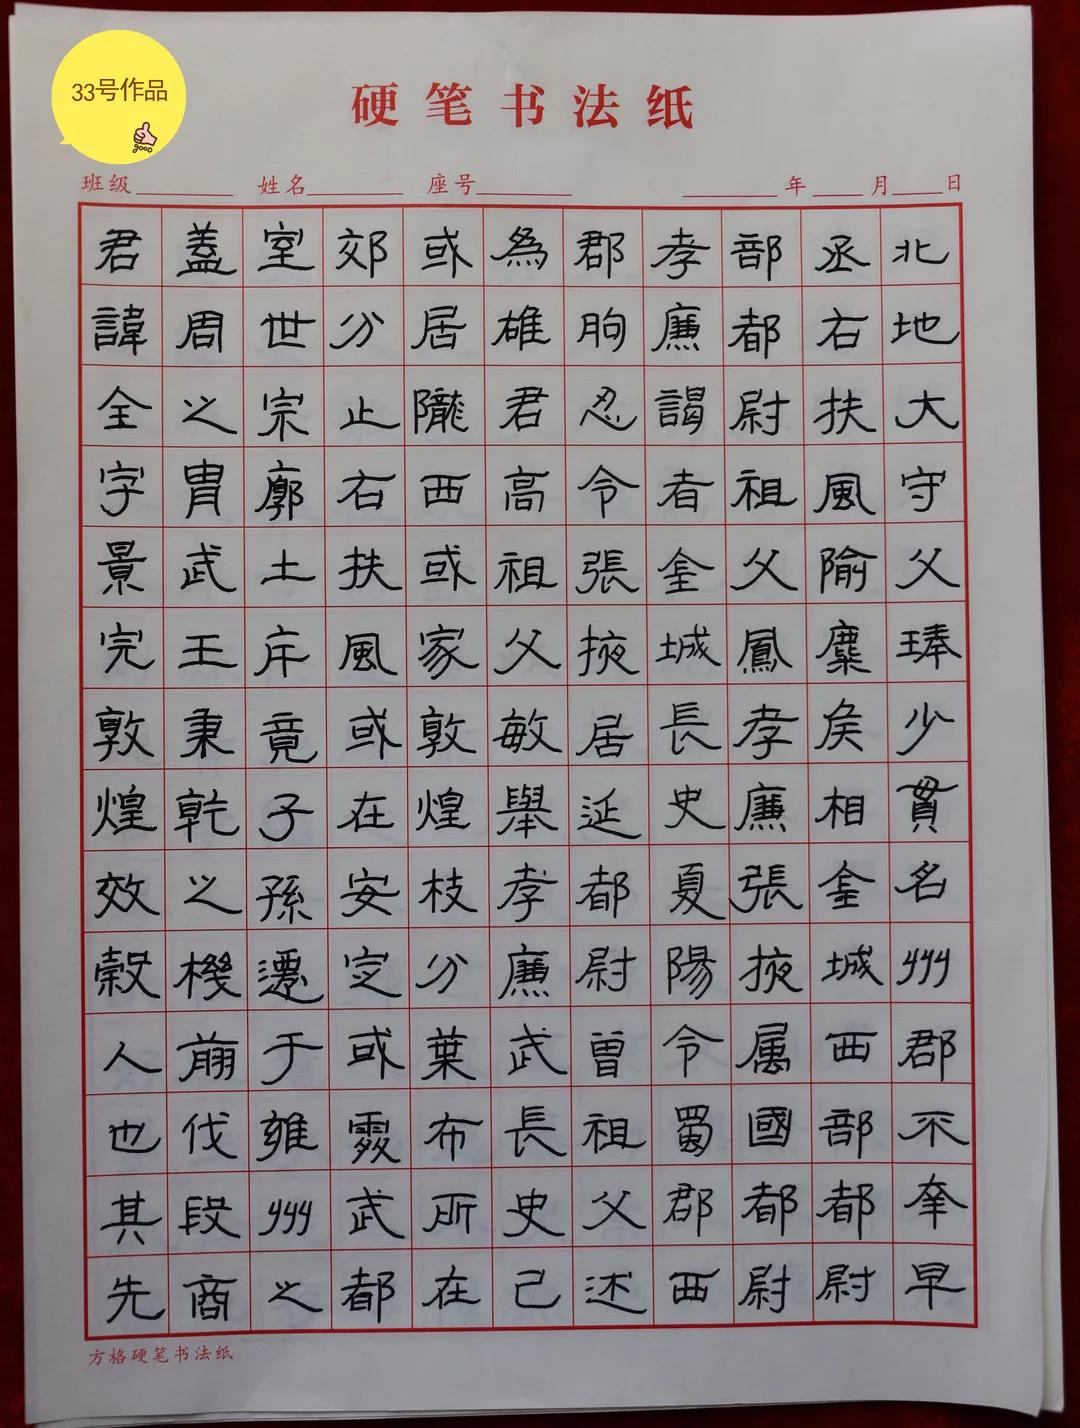 33号作品
硬笔书法纸
班级 姓名 座号 年 月 日
君諱全字景完敦煌效穀人也其先
蓋周之冑武王秉乾之機翦伐殷商
室世宗廓土斥竟子孫遷于雍州之
郊分止右扶風或在安定或處武都
或居隴西或家敦煌枝分葉布所在
為雄君高祖父敏舉孝廉武長史己
郡朐忍令張掖居延都尉曾祖父述
孝廉謁者金城長史夏陽令蜀郡西
部都尉祖父鳳孝廉張掖属國都尉
丞右扶風隃麋侯相金城西部都尉
北地大守父琫少貫名州郡不幸早
方格硬笔书法纸